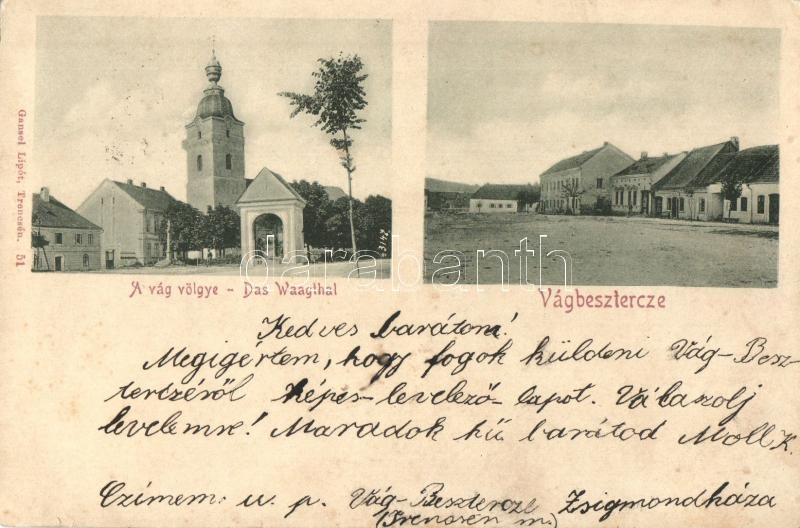 Gansel Lipót, Trencsén. 51
3142
darabanth
A vág völgye - Das Waagthal
Vágbesztercze
Kedves barátom!
Megigértem, hogy fogok küldeni Vág-Besz-
terczéről képes-levelező-lapot. Válaszolj
levelemre! Maradok hű barátod Moll K.
Czímem: u. p. Vág-Besztercze Zsigmondháza
(Trencsén m.)